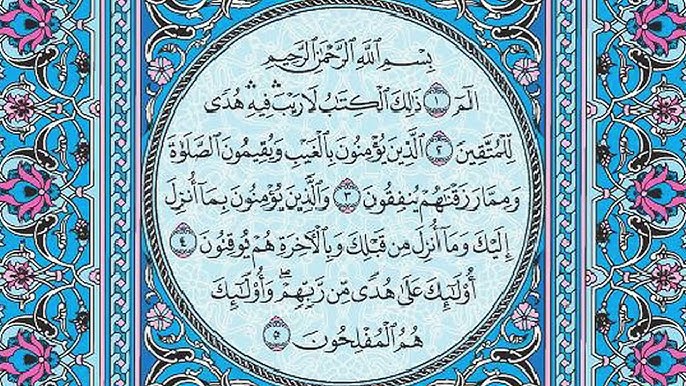 بِسْمِ اللَّهِ الرَّحْمَٰنِ الرَّحِيمِ
الٓمٓ ١ ذَٰلِكَ الْكِتَابُ لَا رَيْبَ ۛ فِيهِ ۛ هُدًى
لِّلْمُتَّقِينَ ٢ الَّذِينَ يُؤْمِنُونَ بِالْغَيْبِ وَيُقِيمُونَ الصَّلَوٰةَ
وَمِمَّا رَزَقْنَٰهُمْ يُنفِقُونَ ٣ وَالَّذِينَ يُؤْمِنُونَ بِمَآ أُنزِلَ
إِلَيْكَ وَمَآ أُنزِلَ مِن قَبْلِكَ وَبِالْآخِرَةِ هُمْ يُوقِنُونَ ٤
أُو۟لَٰٓئِكَ عَلَىٰ هُدًى مِّن رَّبِّهِمْ ۖ وَأُو۟لَٰٓئِكَ
هُمُ الْمُفْلِحُونَ ٥